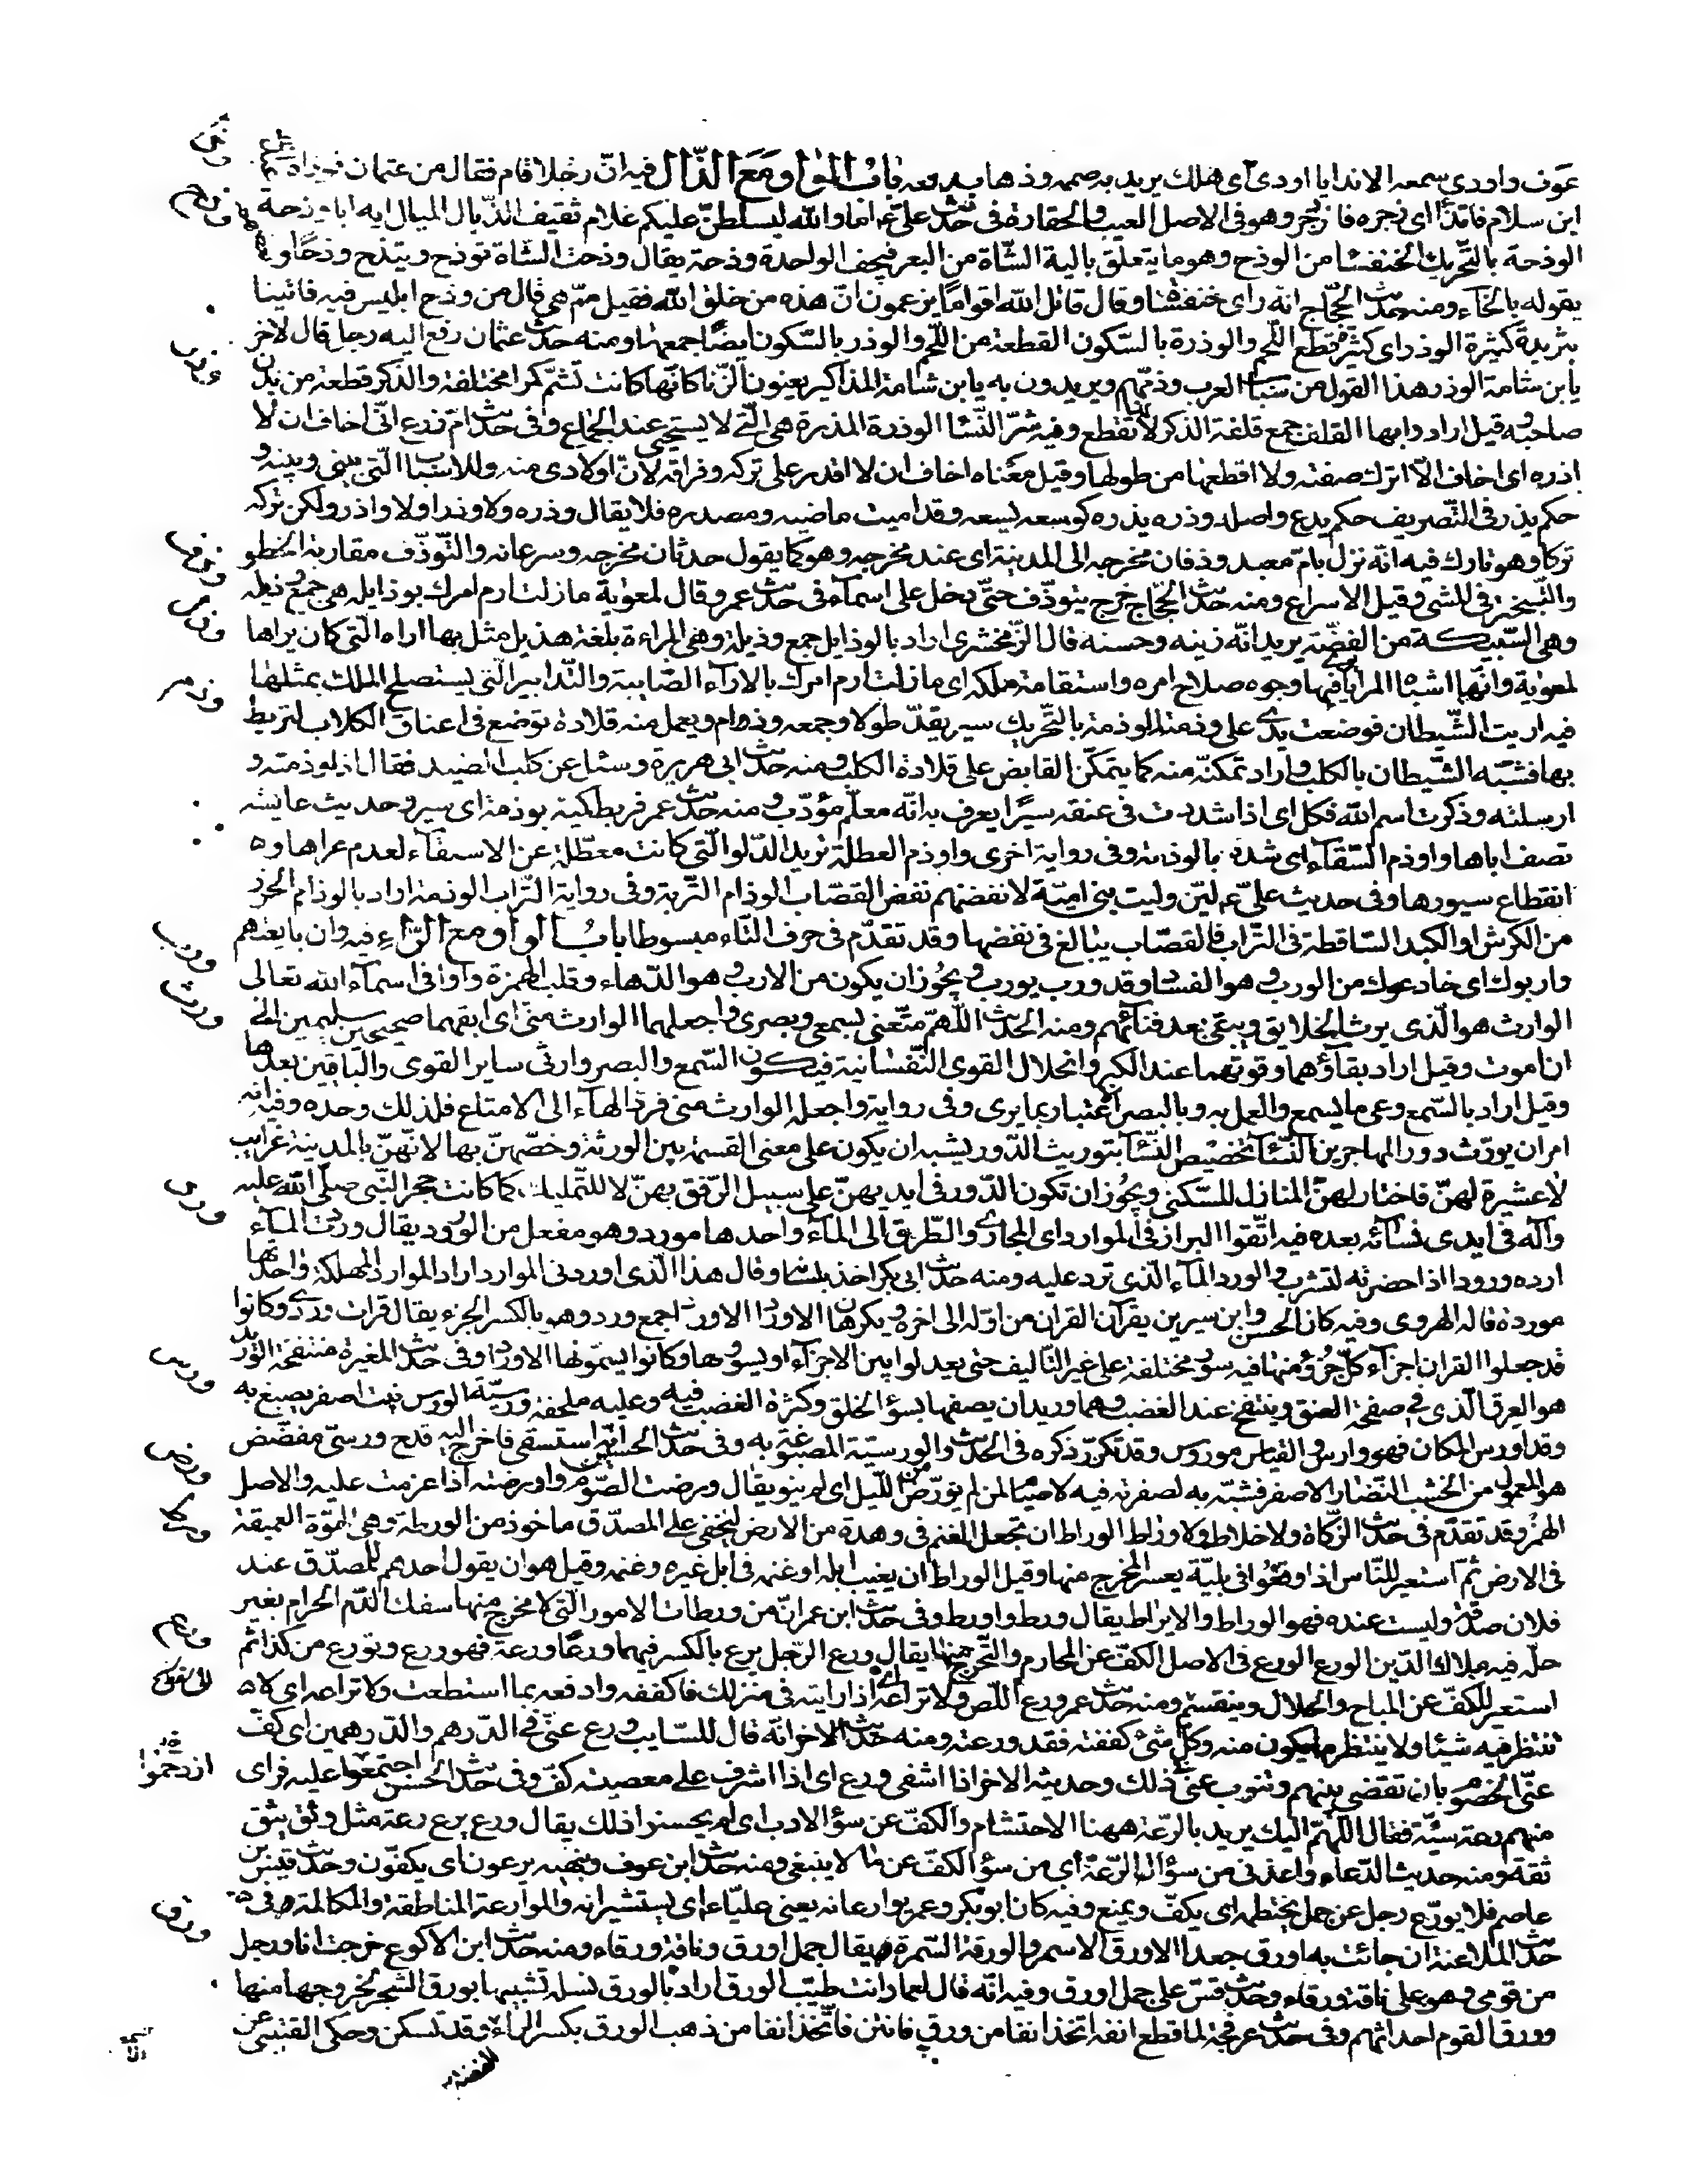 عوف واودي سمعه الاندايا اودى اى هلك يريد به صممه وذهاب سمعه باب الواو مع الذال فيه ان رجلا قام فقال من عثمان
ابن سلام فاتذأ اى زجره فازدجر وهو فى الاصل العيب والحقارة فى حدث على ع اما والله ليسلطن عليكم غلام ثقيف الذيال الميال ايه ابا وذحة
الوذحة بالتحريك الخنفسا من الوذح وهو ما يتعلق بالية الشاة من البعر فيجف الواحدة وذحة يقال وذحت الشاة توذح وتيذح وذحا و
يقوله بالخاء ومنه حدث الحجاج انه راى خنفسا وقال قاتل الله اقواما يزعمون ان هذه من خلق الله فقيل مم هى قال من وذح ابليس فيه فاتينا
بثريدة كثيرة الوذر اى كثيرة قطع اللحم والوذرة بالسكون القطعة من اللحم والوذر بالسكون ايضا جمعها ومنه حدث عثمان رفع اليه رجل قال لاخر
يابن شامة الوذر هذا القول من سباب العرب وذمهم ويريدون به يابن شامة المذاكير يعنون الزنا كانها كانت تشم كمرا مختلفة والذكر قطعة من بدن
صاحبه وقيل ارادوا بها القلف جمع قلفة الذكر لانها تقطع وفيه شر النسا الوذرة المذرة هى التى لا يستحيى عند الجماع وفى حدث ام زرع انى اخاف ان لا
اذره اى اخاف الا اترك صفته ولا اقطعها من طولها وقيل معناه اخاف ان لا اقدر على تركه وفراقه لان اولادى منه وللاسباب التى بينى وبينه و
حكم يذر فى التصريف حكم يدع واصله وذره يذره كوسعه يسعه وقد اميت ماضيه ومصدره فلا يقال وذره ولا وذرا ولا واذر ولكن تركه
تركا وهو تارك فيه انه نزل بام معبد وذفان مخرجه الى المدينة اى عند مخرجه وهو كما يقول حدثان مخرجه وسرعانه والتوذف مقاربة الخطو
والتبختر فى المشى وقيل الاسراع ومنه حدث الحجاج خرج يتوذف حتى دخل على اسماء فى حدث عمرو قال لمعوية مازلت ارم امرك بوذايله هى جمع وذيلة
وهى السبيكة من الفضة يريد انه زينه وحسنه قال الزمخشرى اراد بالوذايل جمع وذيلة وهى المراءة بلغة هذيل مثل بها اراه التى كان يراها
لمعوية وانها اشباه المرايا فيها وجوه صلاح امره واستقامة ملكه اى مازلت ارم امرك بالاراء الصايبة والتدابير التى يستصلح الملك بمثلها
فيه اريت الشيطان فوضعت يدى على وذمته الوذمة بالتحريك سير يقد طولا وجمعه وذام ويعمل منه قلادة توضع فى اعناق الكلاب لتربط
بها فشبه الشيطان بالكلب واراد تمكنه منه كما يتمكن القابض على قلادة الكلب ومنه حدث ابى هريرة وسئل عن كلب الصيد فقال اذا وذمته و
ارسلته وذكرت اسم الله فكل اى اذا شددت فى عنقه سيرا يعرف به انه معلم مؤدب ومنه حدث عمر فربط كميه بوذمة اى سير وحديث عايشه
تصف اباها واوذم السقاء اى شده بالوذمة وفى رواية اخرى واوذم العطلة تريد الدلو التى كانت معطلة عن الاستقاء لعدم عراها و
انقطاع سيورها وفى حديث على ع لئن وليت بنى امية لانفضنهم نفض القصاب الوذام التربة وفى رواية التراب الوذمة اراد بالوذام الحزز
من الكرش او الكبد الساقطة فى التراب فالقصاب يبالغ فى نفضها وقد تقدم فى حرف التاء مبسوطا باب الواو مع الراء فيه وان بايعتهم
واربوك اى خادعوك من الورب وهو الفساد وقد ورب يورب ويجوز ان يكون من الارب وهو الدهاء وقلب الهمزة واوا فى اسماء الله تعالى
الوارث هو الذى يرث الخلايق ويبقى بعد فنائهم ومنه الحدث اللهم متعنى بسمعى وبصرى واجعلهما الوارث منى اى ابقهما صحيحين سليمين الى
ان اموت وقيل اراد بقاؤهما وقوتهما عند الكبر وانحلال القوى النفسانية فيكون السمع والبصر وارثى ساير القوى والباقين بعدها
وقيل اراد بالسمع وعى ما يسمع والعمل به وبالبصر اعتبار بما يرى وفى رواية واجعله الوارث منى فرد الهاء الى الامتاع فلذلك وحده وفيه انه
امر ان يورث دور المهاجرين النساء تخصيص النساء بتوريث الدور يشبه ان يكون على معنى القسمة بين الورثة وخصهن بها لانهن بالمدينة غرايب
لا عشيرة لهن فاختار لهن المنازل للسكنى ويجوز ان تكون الدور فى ايديهن على سبيل الرفق بهن لا للتمليك كما كانت حجر النبى صلى الله عليه
وآله فى ايدى نسائه بعده فيه اتقوا البراز فى الموارد اى المجارى والطرق الى الماء واحدها مورد وهو مفعل من الورود يقال وردت الماء
ارده ورودا اذا حضرته لتشرب والورد الماء الذى ترد عليه ومنه حدث ابى بكر اخذ بلسانه وقال هذا الذى اوردنى الموارد اراد الموارد المهلكة واحدتها
موردة قاله الهروى وفيه كان الحسن وابن سيرين يقرآن القران من اوله الى اخره ويكرهان الاوراد الاوراد جمع ورد وهو بالكسر الجزء يقال قرات وردى وكانوا
قد جعلوا القران اجزاء كل جزؤ منها فيه سور مختلفة على غير التاليف حتى يعدلوا بين الاجزاء ويسووها وكانوا يسمونها الاوراد وفى حدث المغيرة منتفخة الوريد
هو العرق الذى فى صفحة العنق وينتفخ عند الغضب وهما وريدان يصفها بسؤ الخلق وكثرة الغضب فيه وعليه ملحفة ورسية الورس نبت اصفر يصبغ به
وقد اورس المكان فهو وارس والقياس مورس وقد تكرر ذكره فى الحدث والورسية المصبوغة به وفى حدث الحسين انه استسقى فاخرج اليه قدح ورسى مفضض
هو المعمول من الخشب النضار الاصفر فشبه به لصفرته فيه لا صيام لمن لم يورض من الليل اى لم ينو يقال ورضت الصوم واورضته اذا عزمت عليه والاصل
الهمز وقد تقدم فى حدث الزكاة ولا خلاط ولا وراط الوراط ان تجعل الغنم فى وهدة من الارض لتخفى على المصدق ماخوذ من الورطة وهى الهوة العميقة
فى الارض ثم استعير للناس اذا وقعوا فى بلية يعسر المخرج منها وقيل الوراط ان يغيب ابله او غنمه فى ابل غيره وغنمه وقيل هو ان يقول احدهم للمصدق عند
فلان صدقة وليست عنده فهو الوراط والايراط يقال ورط واورط وفى حدث ابن عمر ان من ورطات الامور التى لا مخرج منها سفك الدم الحرام بغير
حله فيه ملاك الدين الورع الورع فى الاصل الكف عن المحارم والتحرج منها يقال ورع الرجل يرع بالكسر فيهما ورعا ورعة فهو ورع وتورع من كذا ثم
استعير للكف عن المباح والحلال وينقسم ومنه حدث عمر ورع اللص ولا تراعه اى اذا رايته فى منزلك فاكففه وادفعه بما استطعت ولا تراعه اى لا
تنتظر فيه شيئا ولا ينتظر ما يكون منه وكل شئ كففته فقد ورعته ومنه حدث الاخر انه قال للسايب ورع عنى فى الدرهم والدرهمين اى كف
عنى الخصوم بان تقضى بينهم وتنوب عنى فى ذلك وحديثه الاخر اذا اشفى ورع اى اذا اشرف على معصيته كف وفى حدث الحسن اجتمعوا عليه فراى
منهم رعة سيئة فقال اللهم اليك يريد بالرعة ههنا الاحتشام والكف عن سؤ الادب اى لم يحسنوا ذلك يقال ورع يرع رعة مثل وثق يثق
ثقة ومنه حديث الدعاء واعذنى من سؤ الرعة اى من سؤ الكف عن ما لا ينبغى ومنه حدث ابن عوف وبنهيه يرعون اى يكفون وحدث قيس بن
عاصم فلا يورع رجل عن جمل يختطمه اى يكف ويمنع وفيه كان ابوبكر وعمر يوارعانه يعنى عليا ع اى يستشيرانه والموارعة المناطقة والمكالمة فى
حدث الملاعنة ان جائت به اورق جعدا الاورق الاسمر والورقة السمرة يقال جمل اورق وناقة ورقاء ومنه حدث ابن الاكوع خرجت انا ورجل
من قومى وهو على ناقة ورقاء وحدث قس على جمل اورق وفيه انه قال لعمار انت طيب الورق اراد بالورق نسله تشبيها بورق الشجر لخروجها منها
وورق القوم احداثهم وفى حدث عرفجة لما قطع انفه اتخذ انفا من ورق فانتن فاتخذ انفا من ذهب الورق بكسر الراء وقد تسكن وحكى القتيبى عن